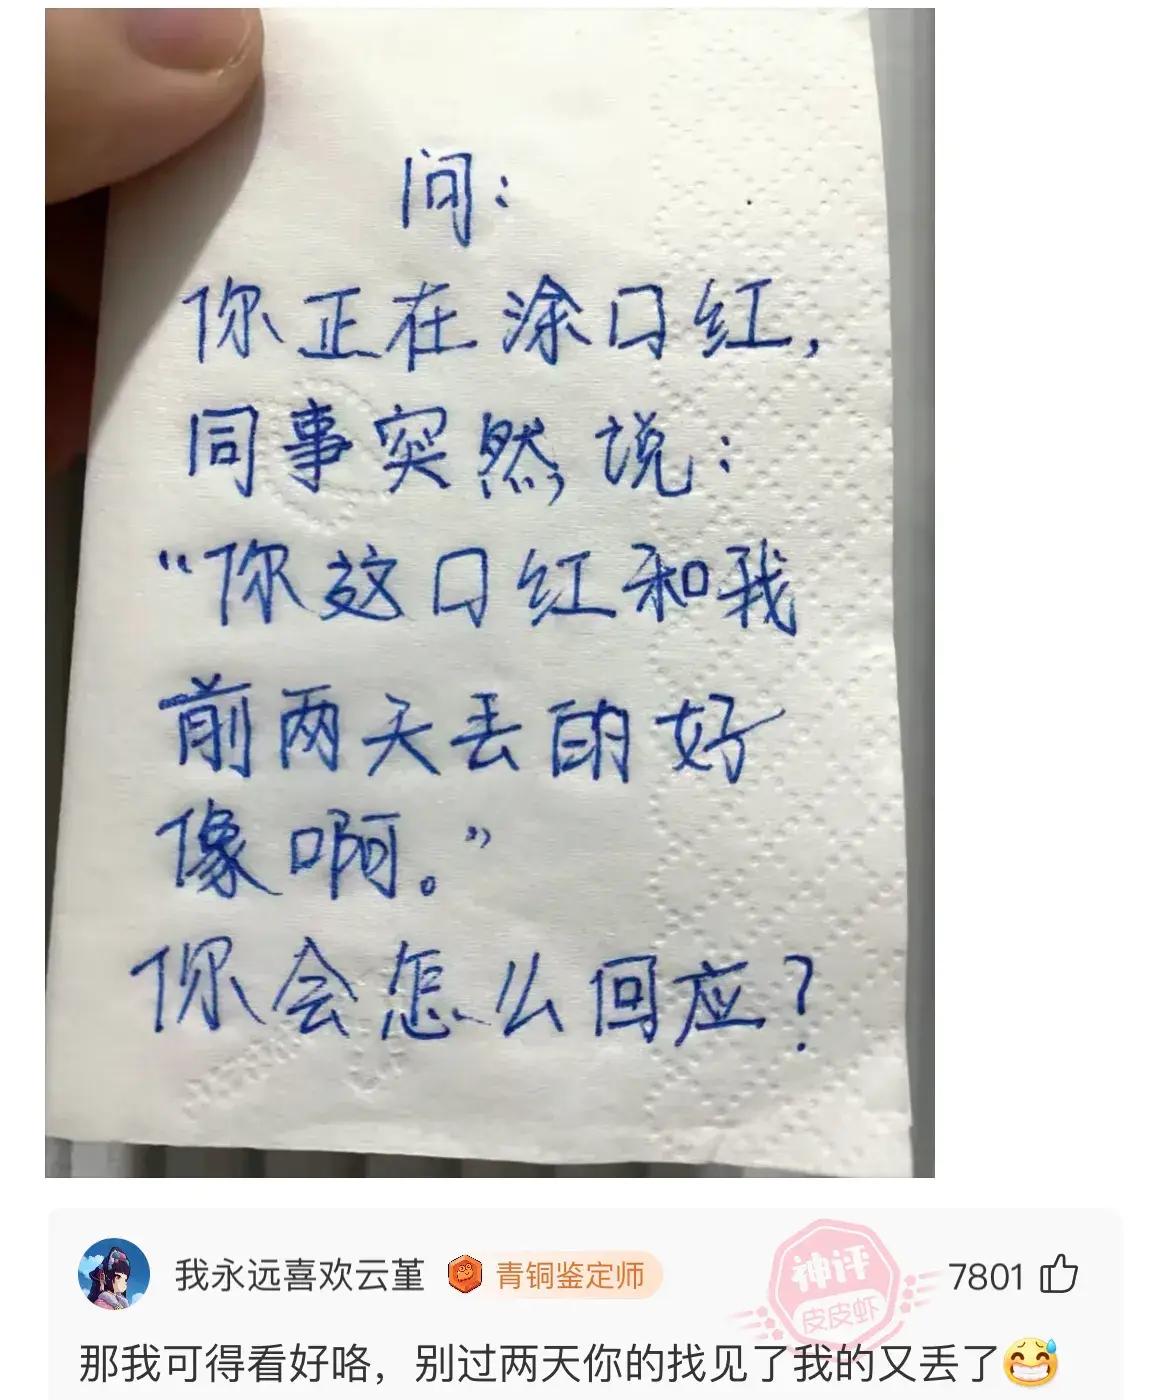 问：
你正在涂口红，
同事突然说：
“你这口红和我
前两天丢的好
像啊。”
你会怎么回应？
我永远喜欢云堇 青铜鉴定师 神评 皮皮虾 7801
那我可得看好咯，别过两天你的找见了我的又丢了😅